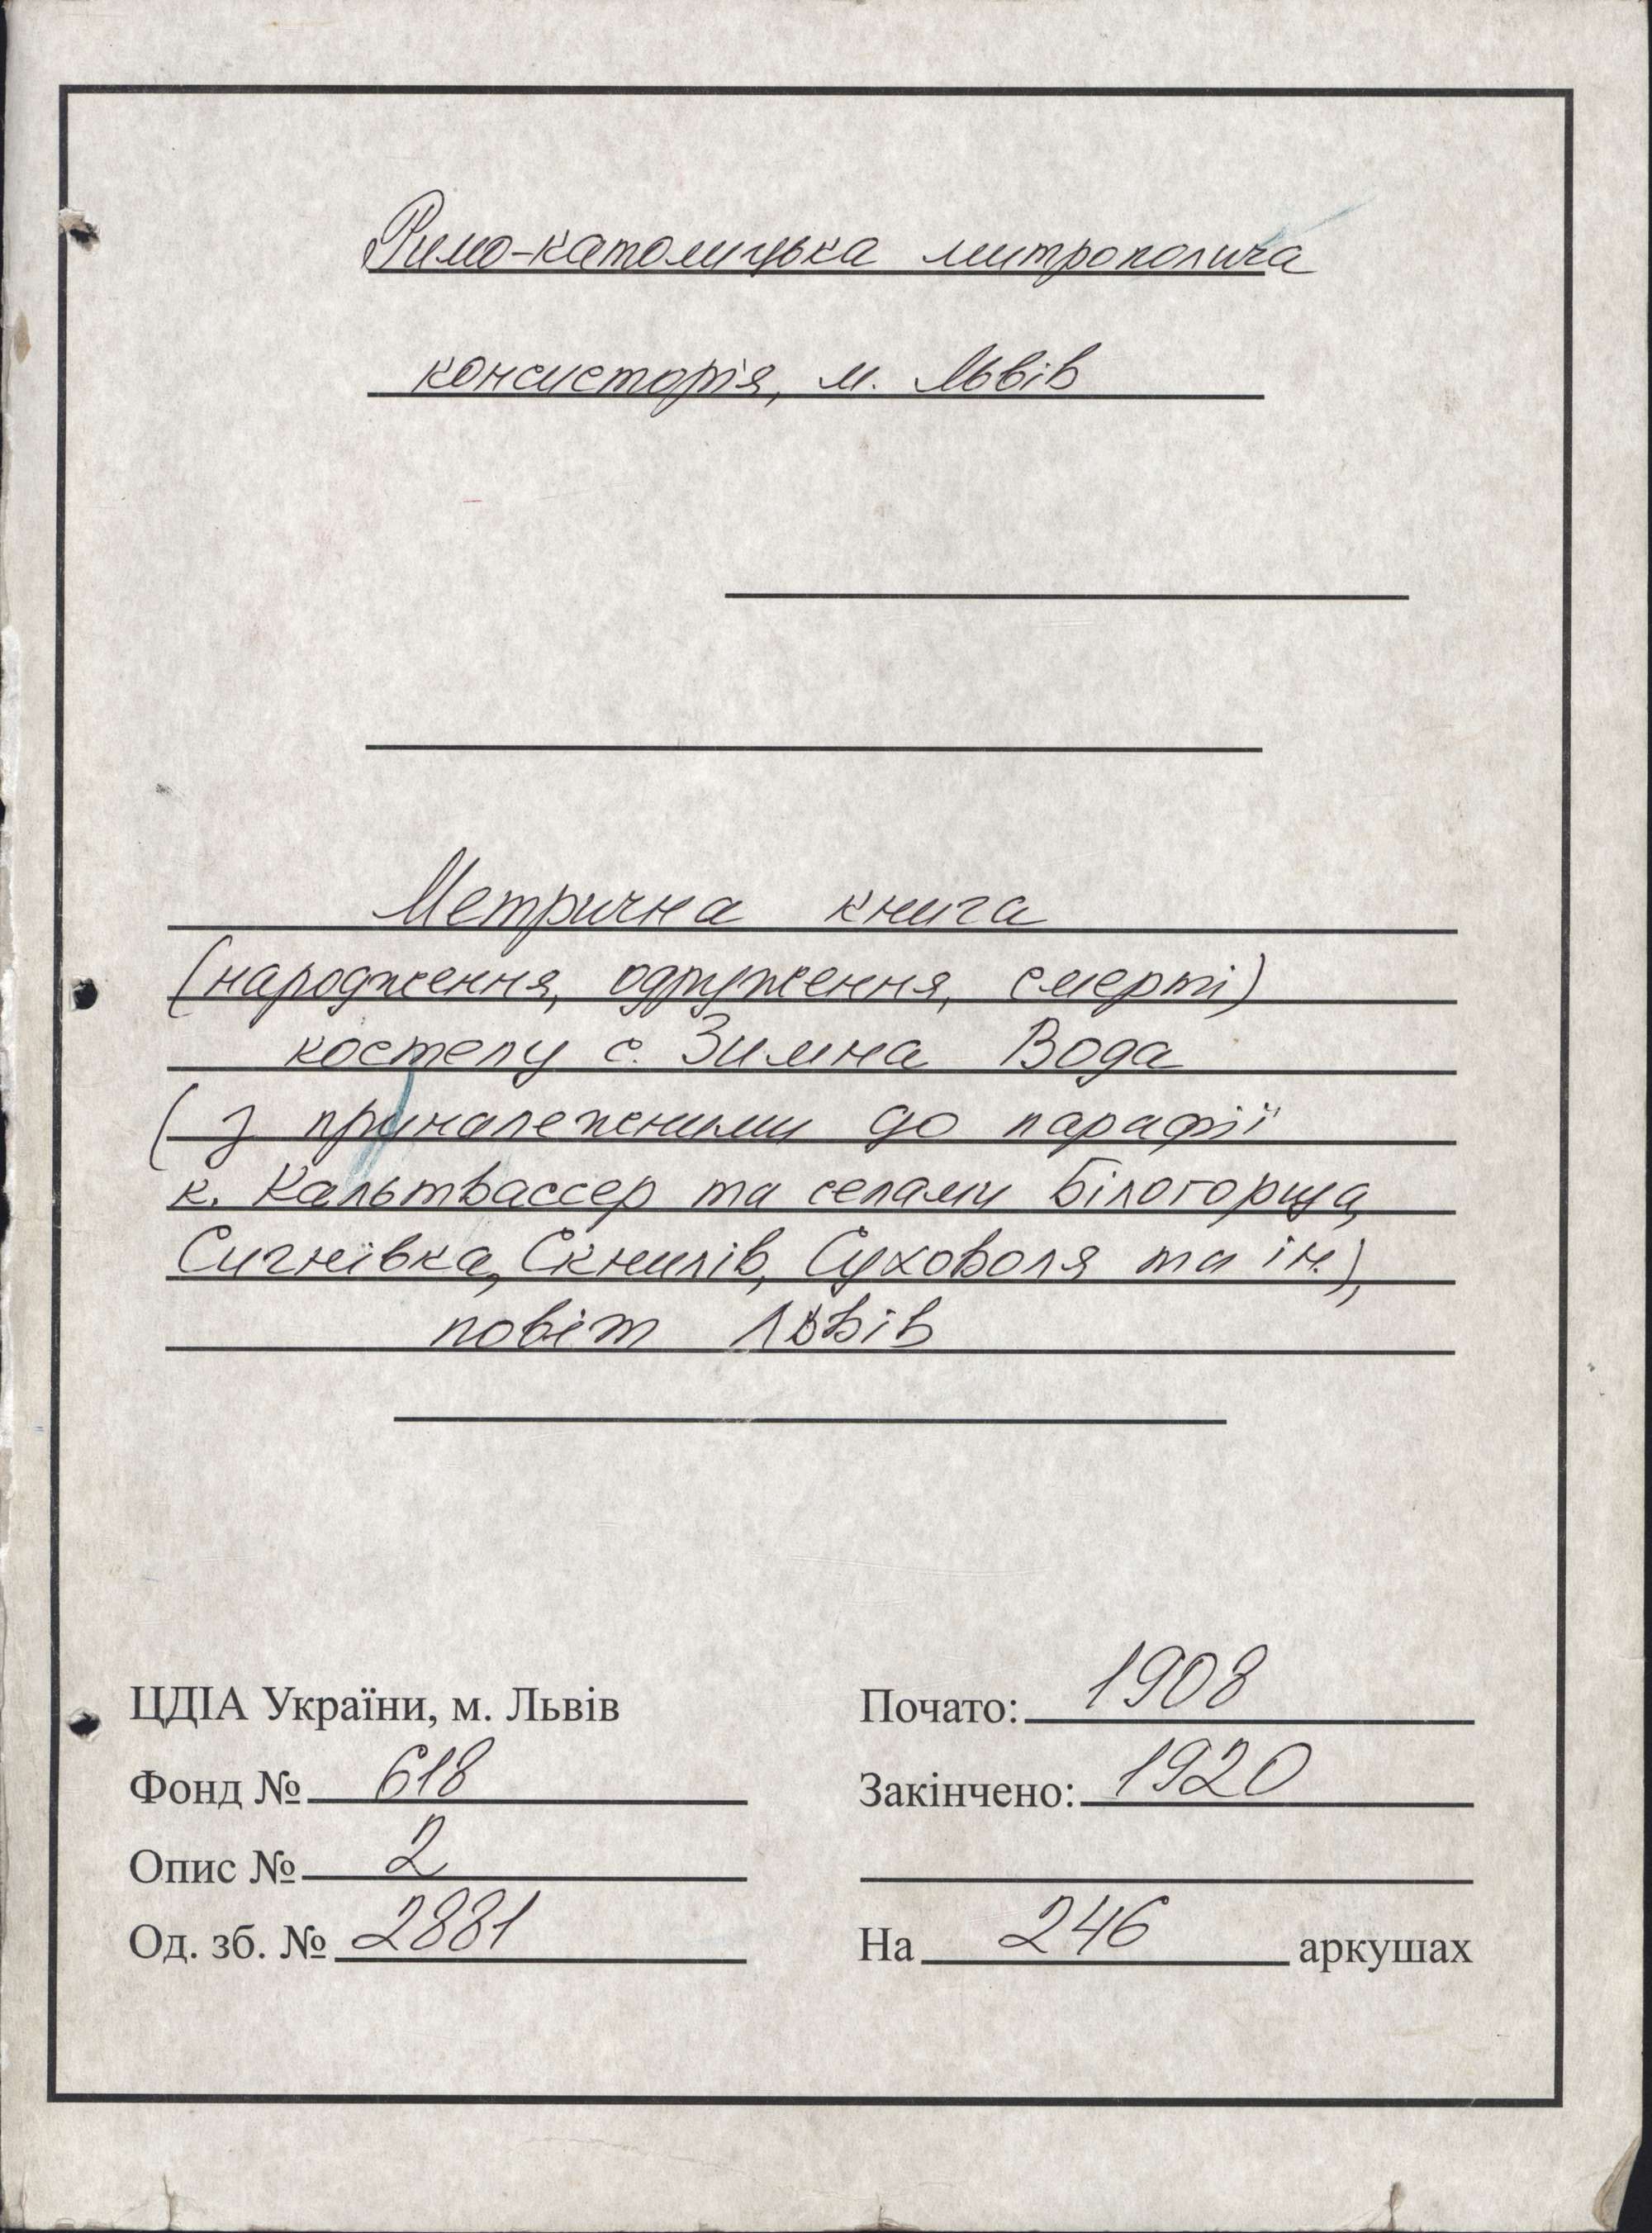 Римо-католицька митрополича
консисторія, м. Львів
Метрична книга
(народження, одруження, смерті)
костелу с. Зимна Вода
(з приналежними до парафії
к. Кальтвассер та селами Білогорща,
Сигнівка, Скнилів, Суховоля та ін.),
повіт Львів
ЦДІА України, м. Львів
Фонд № 618
Опис № 2
Од. зб. № 2881
Почато: 1908
Закінчено: 1920
На 246 аркушах